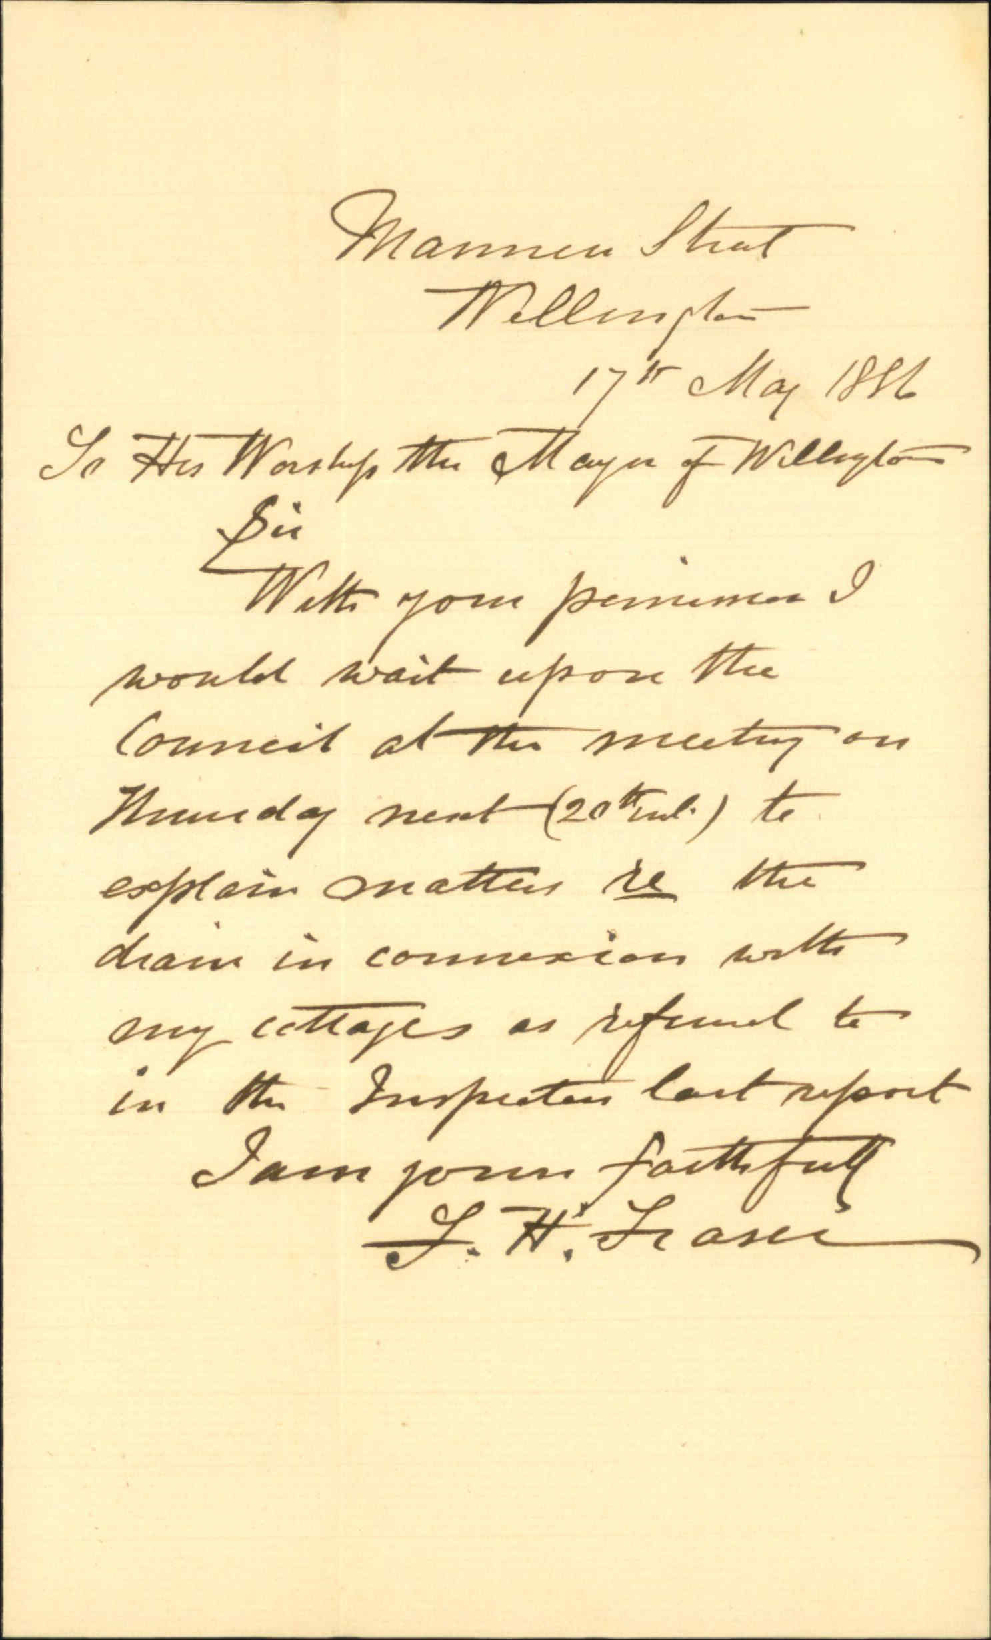 Manners Street
Wellington
17th May 1886
To His Worship the Mayor of Wellington
Sir
With your permission I
would wait upon the
Council at the meeting on
Thursday next (20th inst.) to
explain matters re the
drain in connexion with
my cottages as referred to
in the Inspectors last report
I am yours faithfully
F. H. Fraser